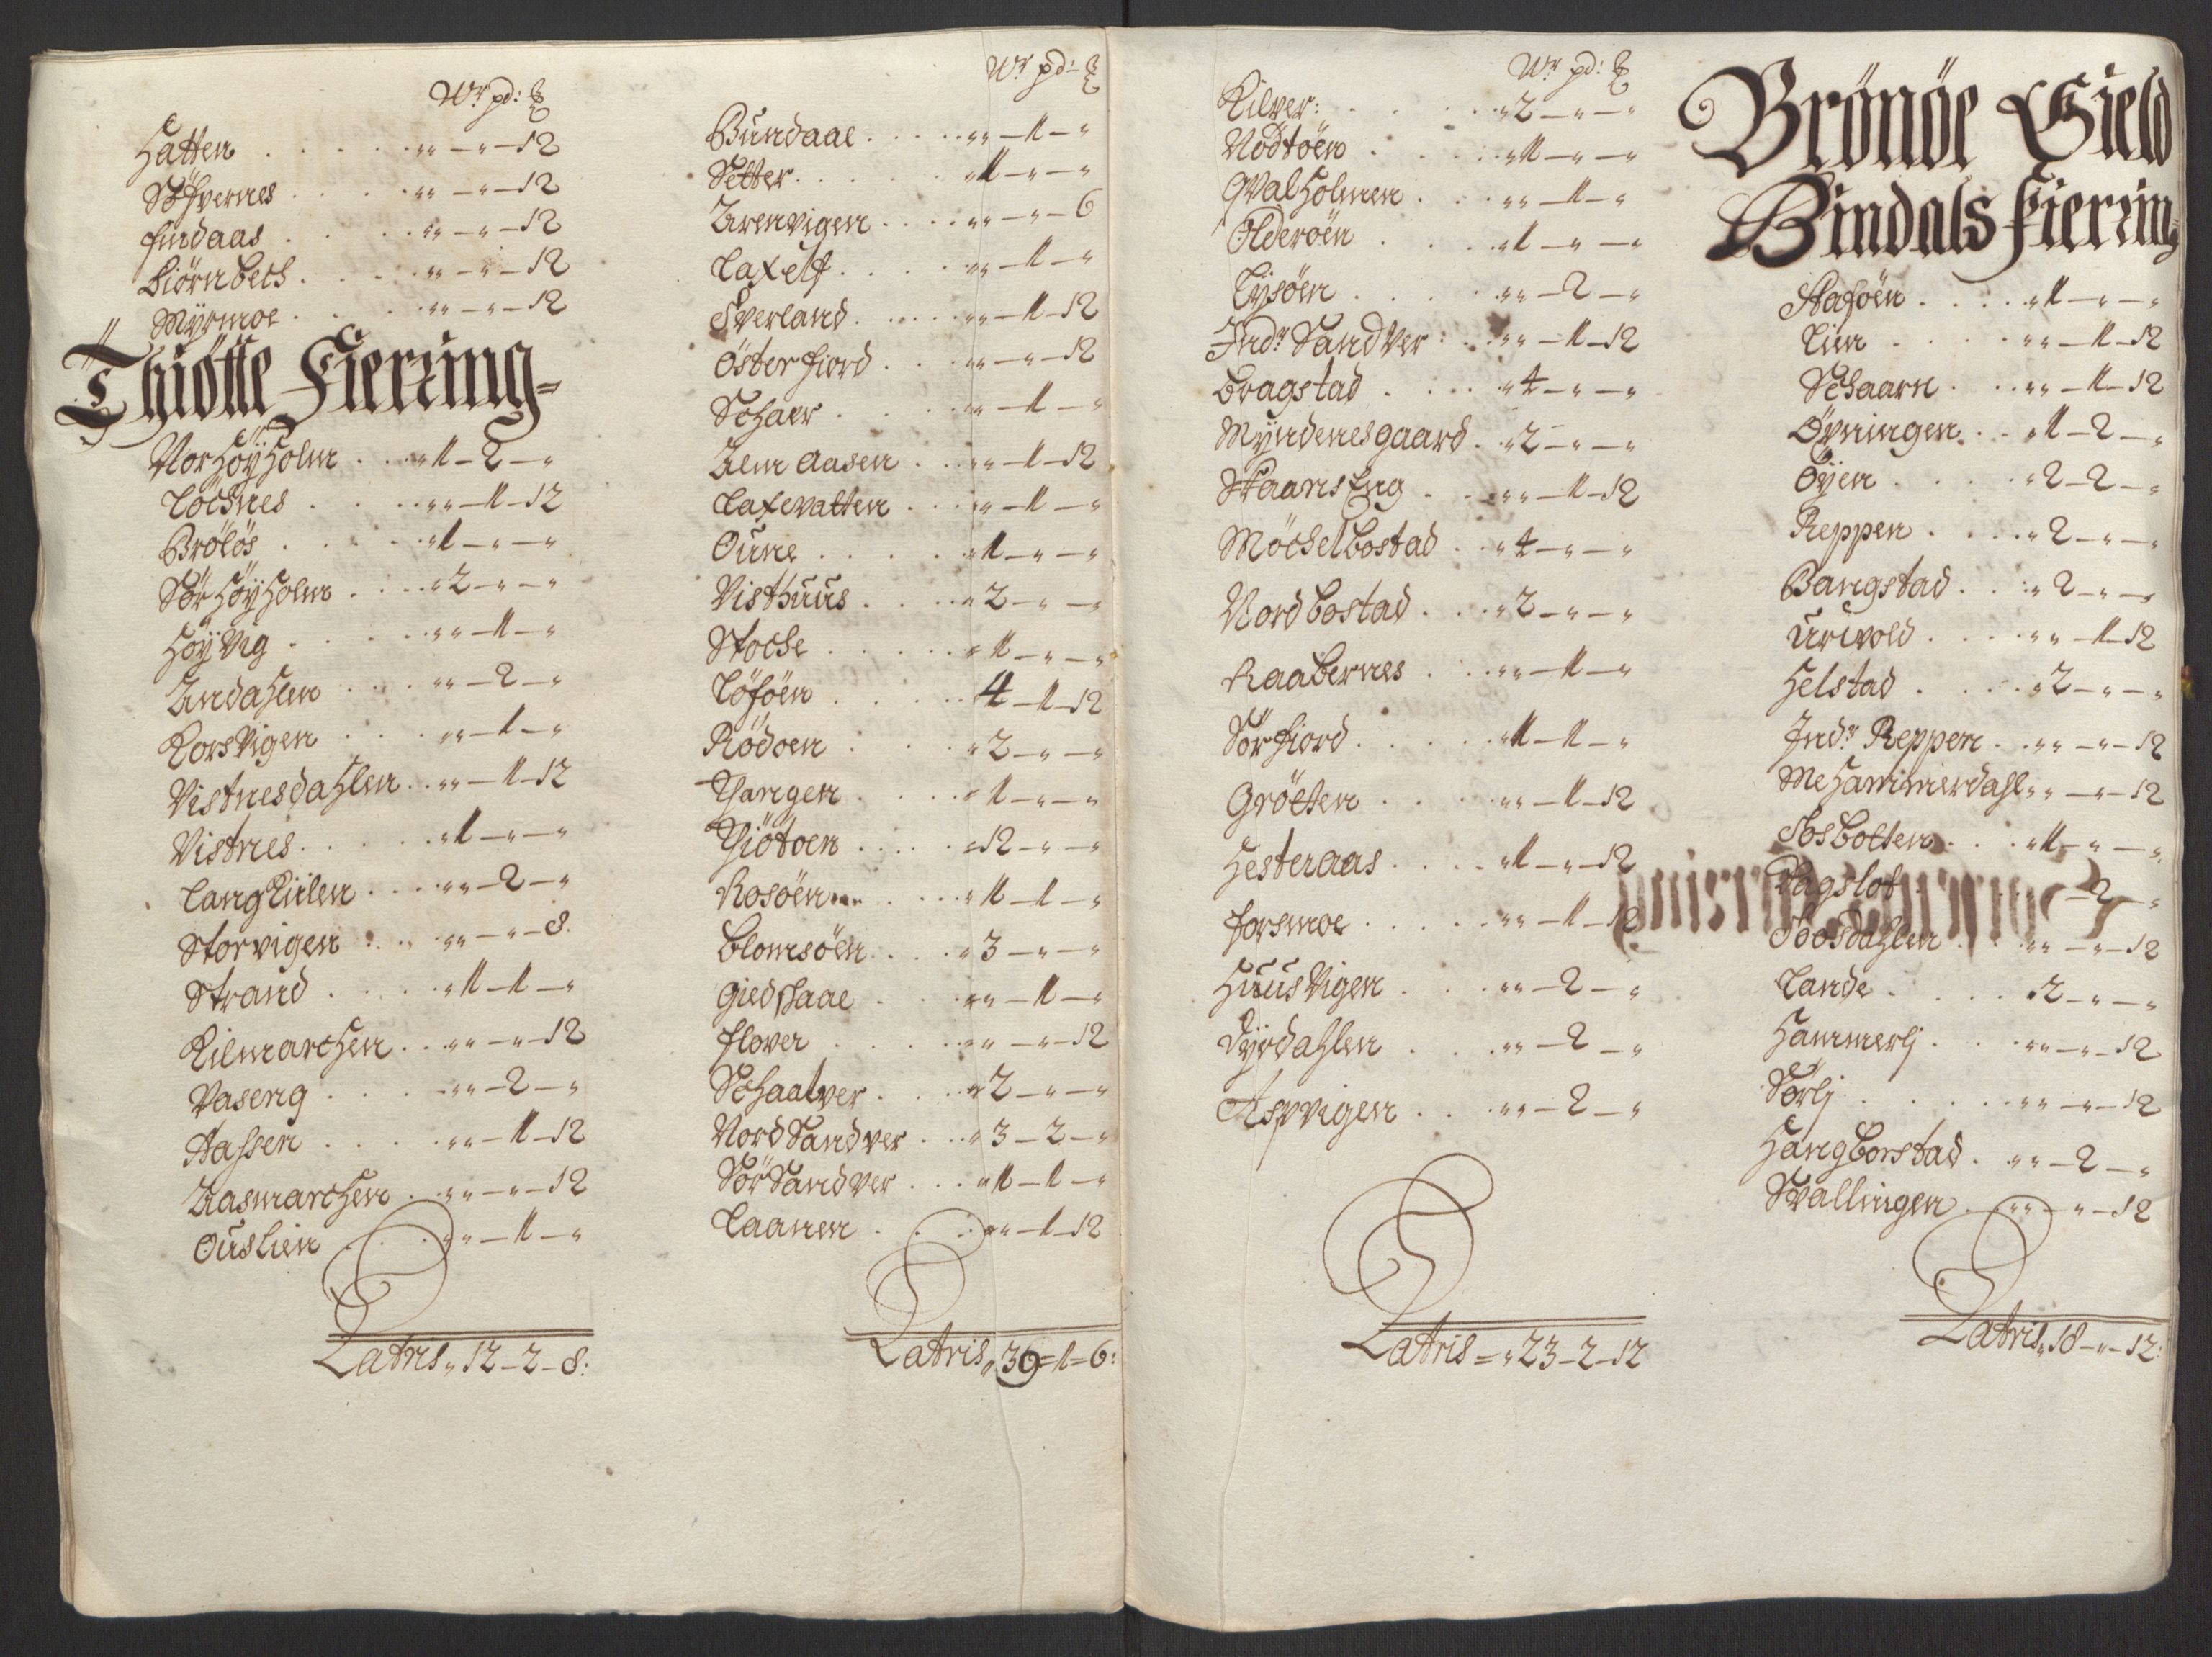 Wr pd: ℔
Hatten . . . . . „„ – „ – 12
Söfvernes . . . . „„ – „ – 12
findaas . . . . „„ – „ – 12
Biörnbech . . . . „„ – „ – 12
Myrmoe . . . . „„ – „ – 12
Thiötte Fierring =
Nor Höyholm . . . „1 – 2 – „
Löchnes . . . . „„ – 1 – 12
Brölös . . . . „1 – „ – „
Sör Höyholm . . . . „2 – „ – „
Höyvig . . . . . „„ – 1 – „
Andahlen . . . . „„ – 2 – „
Korsvigen . . . „„ – 1 – „
Vistnesdahlen . . „„ – 1 – 12
Vistnes . . . . . „1 – „ – „
Langkilen . . . . „„ – 2 – „
Storvigen . . . „„ – „ – 8.
Strand . . . . „1 – 1 – „
Kilmarchen . . „„ – „ – 12
Vaseng . . . . „„ – 2 – „
Aassen . . . . „„ – 1 – 12
Aasmarchen . . „„ – „ – 12
Ouslien . . . „„ – 1 – „
Latris „ 12 – 2 – 8:
Wr pd: ℔
Bundaal . . . . . „„ – 1 – „
Setter . . . . . „1 – „ – „
Arenvigen . . . . „„ – „ – 6
Laxelf . . . . . „„ – 1 – „
Sverland . . . . . „„ – 1 – 12
Österfiord . . . „„ – „ – 12
Schaer . . . . „„ – 1 – „
Alm Aasen . . . „„ – 1 – 12
Laxevatten . . . „„ – 1 – „
Oune . . . . . „1 – „ – „
Visthuus . . . . „ 2 – „ – „
Stoche . . . . . „ 1 – „ – „
Löföen . . . . . 4 – 1 – 12
Rödoen . . . . „ 2 – „ – „
Thangen . . . . „ 1 – „ – „
Thiötoen . . . . „12 – „ – „
Rosöen . . . . „ 1 – 1 – „
Blomsöen . . . . „ 3 – „ – „
Giedshaal . . . „„ – 1 – „
flover . . . . . „„ – „ – 12
Schaalver . . . „ 2 – „ – „
Nord Sandver . . „ 3 – 2 – „
Sör Sandver . . . „1 – 1 – „
Laanen . . . „„ – 1 – 12
Latris „ 36 = 1 = 6:
Wr pd: ℔
Kilver: . . . . „2 – „ – „
Nödtöen . . . . „1 – „ – „
Qvalholmen . . . „„ – 1 – „
Olderöen . . . . „1 – „ – „
Lysöen . . . . „„ – 2 – „
Indr Sandver: . . „„ – 1 – 12
Bragstad . . . . „4 – „ – „
Myndenesgaard . . „2 – „ – „
Skaans Eng . . . „„ – 1 – 12
Möchelbostad . . „ 4 – „ – „
Nordbostad . . . „2 – „ – „
Raabernes . . . „„ – 1 – „
Sörfiord . . . . . „1 – 1 – „
Grötten . . . . „„ – 1 – 12
Hesteraas . . . . „1 – „ – 12
forsmoe . . . . . „„ – 1 – 12
Huusvigen . . . „„ – 2 – „
Dyrdahlen . . . „„ – 2 – „
Aspvigen . . . „„ – 2 – „
Latris = „ 23 – 2 – 12
Brönöe Gield
Bindals fierring
Staföen . . . . „1 – „ – „
Lien . . . . . „„ – 1 – 12
Schaarn . . . „„ – 1 – 12
Öfningen . . „1 – 2 – „
Öyen . . . . . „2 – 2 – „
Reppen . . . . „ 2 – „ – „
Bangstad . . . „ 2 – „ – „
Urwold . . . . „„ – 1 – 12
Helstad . . . . „2 – „ – „
Indr Reppen . . „„ – „ – 12
Mehammerdahl „„ – „ – 12
Fosbotten . . . „1 – „ – „
Dagslot . . . – 2 – „
Toosdahlen . . . „„ – „ – 12
Lande . . . . „2 – „ – „
Hammerlj . . . „„ – „ – 12
Sörlj . . . . . „„ – „ – 12
Hangborstad . „„ – 2 – „
Svallingen . . „„ – „ – 12
Latris „ 18 – „ – 12: